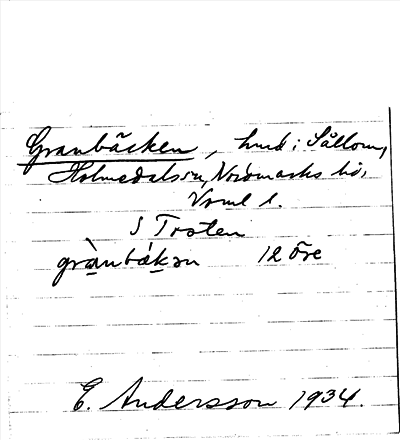 Granbäcken, hmd i Sållom,
Holmedals sn, Nordmarks hd,
Vrml l.
S Troten
grànbákən 12 öre
E. Andersson 1934.